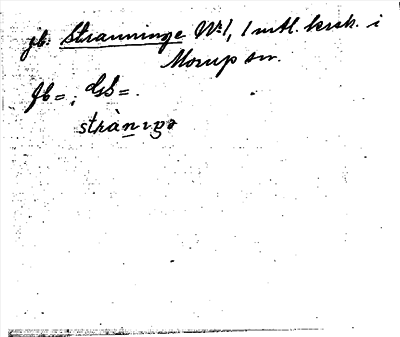 jb. Stranninge Nr 1, 1 mtl. krsk. i
Morup sn.
Jb = ; dsb = .
stràniŋə